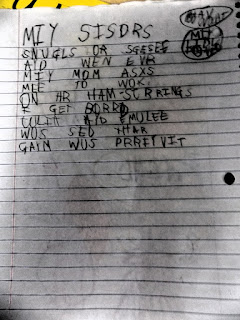 MIY SISDRS
SNUGLS OR SGESEF
AID WEN EVR
MIY MOM ASXS
MEE TO WOK
ON HR HAM-SURRINGS
I GET BORRD
AID EMULEE
WUS SED THAR
GAIN WUS PRREIVIT